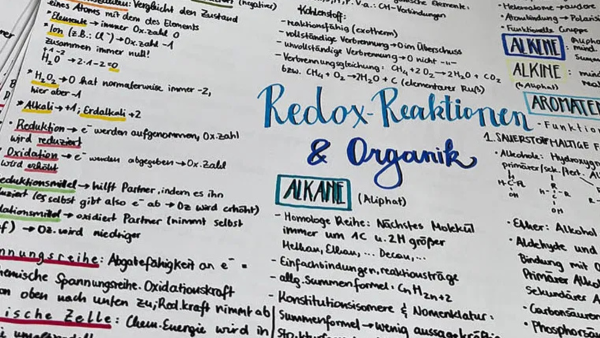 Vergleicht den Zustand
eines Atoms mit dem des Elements
* Elemente → immer Ox.zahl 0
* Ion (z.B.: Cl⁻) → Ox.zahl -1
zusammen immer null!
+1 -2
H₂O → 2·1-2=0
* H₂O₂ → O hat normalerweise immer -2,
hier aber -1
* Alkali → +1, Erdalkali +2
* Reduktion → e⁻ werden aufgenommen, Ox.zahl
wird reduziert
* Oxidation → e⁻ werden abgegeben → Ox.zahl
wird erhöht
eduktionsmittel → hilft Partner, indem es ihn
uziert (es selbst gibt also e⁻ ab → Oz wird erhöht)
dationsmittel → oxidiert Partner (nimmt selbst
f) → Oz. wird niedriger
nnungsreihe: Abgabefähigkeit an e⁻ =
hemische Spannungsreihe. Oxidationskraft
on oben nach unten zu, Red.kraft nimmt ab
ische Zelle: Chem. Energie wird in
(negative)
CH-Verbindungen
Kohlenstoff:
- reaktionsfähig (exotherm)
- vollständige Verbrennung → O im Überschuss
- unvollständige Verbrennung → O nicht -u-
- Verbrennungsgleichung: CH₄ + 2O₂ → 2H₂O + CO₂
bzw. CH₄ + O₂ → 2H₂O + C (elementarer Ruß)
Redox-Reaktionen
& Organik
ALKANE (Aliphat)
- Homologe Reihe: Nächstes Molekül
immer um 1C u. 2H größer
Methan, Ethan, ... Decan, ...
- Einfachbindungen, reaktionsträge
- allg. Summenformel: CnH2n+2
- Konstitutionsisomere & Nomenklatur:
Summenformel → wenig aussagekräftig
- Heteroatome
- Atombindung → Polaris
- Funktionelle Gruppe
ALKENE
ALKINE
(Aliphat)
AROMATEN
- Funktion
1. SAUERSTOFFHALTIGE F
- Alkohole: Hydroxy
primärer/sek./tert. Al
- Ether: Alkohol
- Aldehyde und
Bindung mit O
Primärer Alko
Sekundärer A
- Carbonsäuren
- Phosphorsä